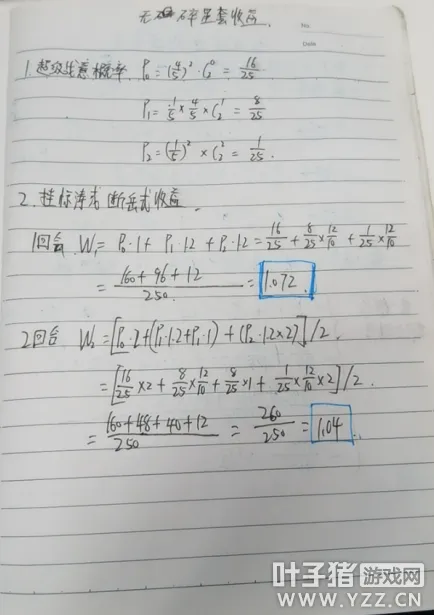 无 碎星套收益.
No.
Date
1.超级生意概率. P₀=(4/5)²·C₂⁰=16/25
P₁=1/5×4/5×C₂¹=8/25
P₂=(1/5)²×C₂²=1/25.
2. 挂标涛 断岳 收益.
1回合. W₁=P₀·1+P₁·1.2+P₂·1.2=16/25+8/25×12/10+1/25×12/10
=(160+96+12)/250.=1.072.
2回合 W₂=[P₀·2+(P₁·1.2+P₁·1)+(P₂·1.2×2)]/2.
=[16/25×2+8/25×12/10+8/25×1+1/25×12/10×2]/2.
=(160+48+40+12)/250=260/250=1.04.
叶子猪游戏网
WWW.YZZ.CN